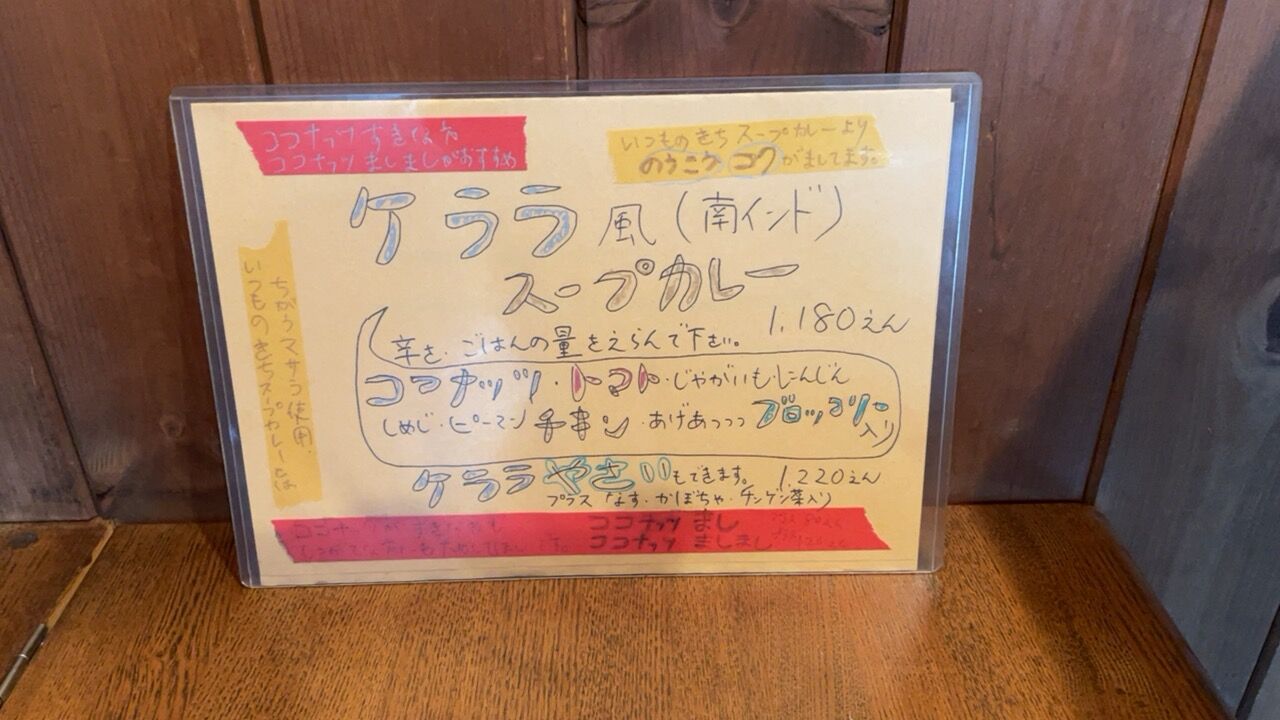 ココナッツすきな方
ココナッツましましがおすすめ
いつものきちスープカレーより
のうこう コクがましてます。
ケララ風(南インド)
スープカレー
1,180えん
いつものきちスープカレーとは
ちがうマサラ使用。
辛さ・ごはんの量をえらんで下さい。
ココナッツ・トマト・じゃがいも・にんじん
しめじ・ピーマン チキン・あげあっつっつ ブロッコリー入り
ケララやさいもできます。 1,220えん
プラス なす・かぼちゃ・チンゲン菜入り
ココナッツ まし プラス80えん
ココナッツ ましまし